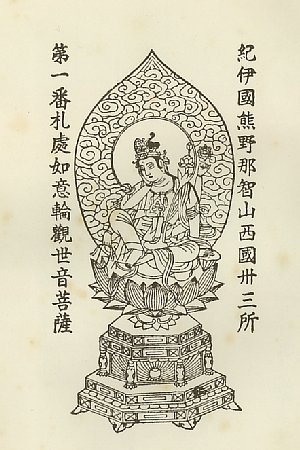 紀伊國熊野那智山西國卅三所
第一番札處如意輪觀世音菩薩